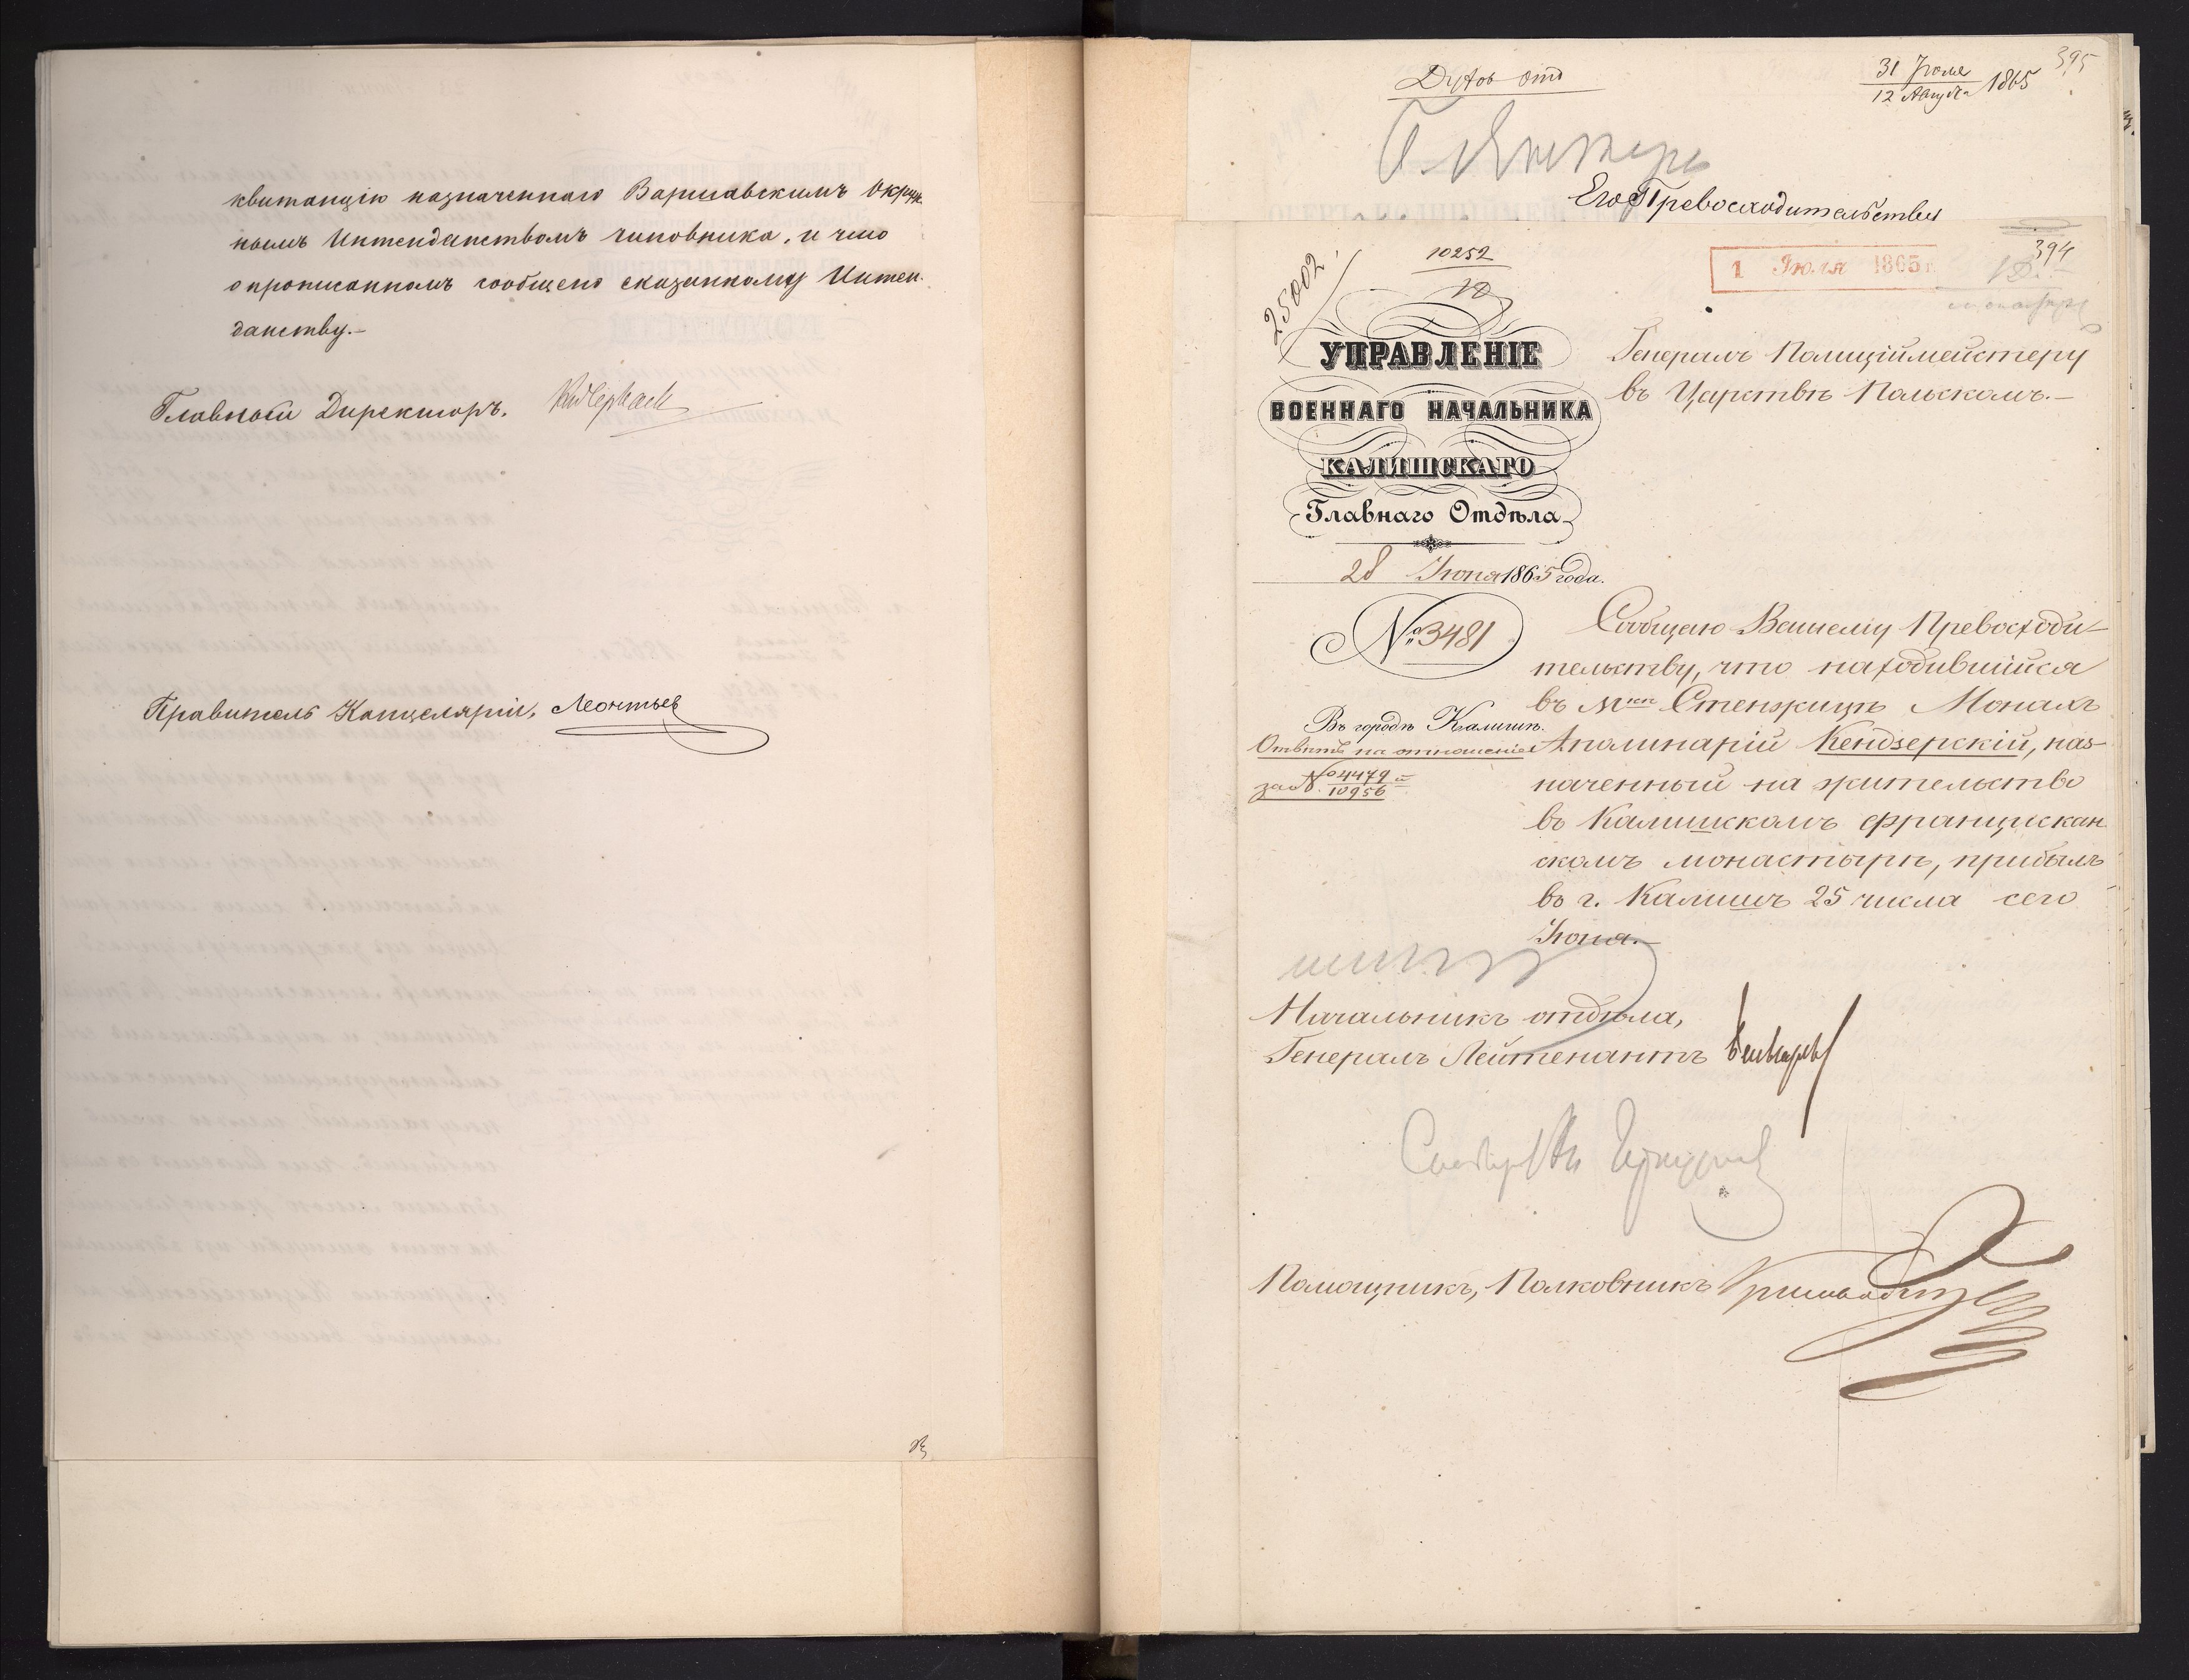 квитанцію назначеннаго Варшавскимъ Окруж-
нымъ Интендантствомъ чиновника, и что
о прописанномъ сообщено сказанному Интен-
дантству.-
Главный Директоръ.
Правитель Канцеляріи, Леонтьев
Духов отд
31 Іюля
12 Августа 1865
395
Его Превосходительству
25002.
10252
12
1 Іюля 1865 г.
394
УПРАВЛЕНІЕ
ВОЕННАГО НАЧАЛЬНИКА
КАЛИШСКАГО
Главнаго Отдѣла
28 Іюня 1865 года.
№ 3481
Въ городѣ Калишѣ.
Отвѣтъ на отношеніе
за № 4479
10956
Генералъ Полиціймейстеру
въ Царствѣ Польскомъ.-
Сообщаю Вашему Превосходи-
тельству, что находившійся
въ Мкѣ Стенжицѣ Монахъ
Аполинарій Кендзерскій, наз-
наченный на жительство
въ Калишскомъ францискан-
скомъ монастырѣ, прибылъ
въ г. Калишъ 25 числа сего
Іюня.-
Начальникъ отдѣла,
Генералъ Лейтенантъ
Помощникъ, Полковникъ